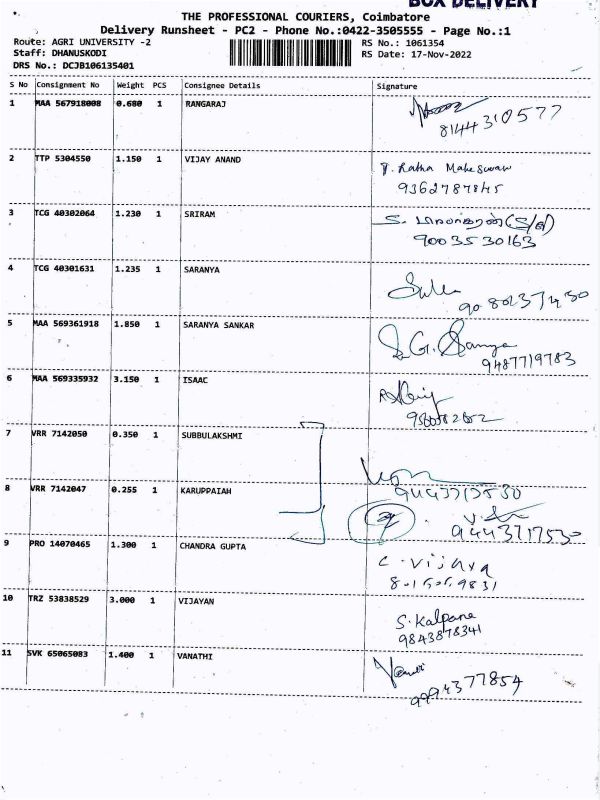 BOX DELIVERY
THE PROFESSIONAL COURIERS, Coimbatore
Delivery Runsheet - PC2 - Phone No.:0422-3505555 - Page No.:1
Route: AGRI UNIVERSITY -2
Staff: DHANUSKODI
DRS No.: DCJB106135401
RS No.: 1061354
RS Date: 17-Nov-2022
S No Consignment No Weight PCS Consignee Details Signature
1 MAA 567918008 0.680 1 RANGARAJ
8144310577
2 TTP 5304550 1.150 1 VIJAY ANAND
T. Ratha Maheswari
9362787845
3 TCG 40302064 1.230 1 SRIRAM
9003530163
4 TCG 40301631 1.235 1 SARANYA
5 MAA 569361918 1.850 1 SARANYA SANKAR
9487719783
6 MAA 569335932 3.150 1 ISAAC
7 VRR 7142050 0.350 1 SUBBULAKSHMI
8 VRR 7142047 0.255 1 KARUPPAIAH
9443717530
9 PRO 14070465 1.300 1 CHANDRA GUPTA
C. Vijaya
10 TRZ 53838529 3.000 1 VIJAYAN
S. Kalpana
9843878341
11 SVK 65065083 1.400 1 VANATHI
9994377854